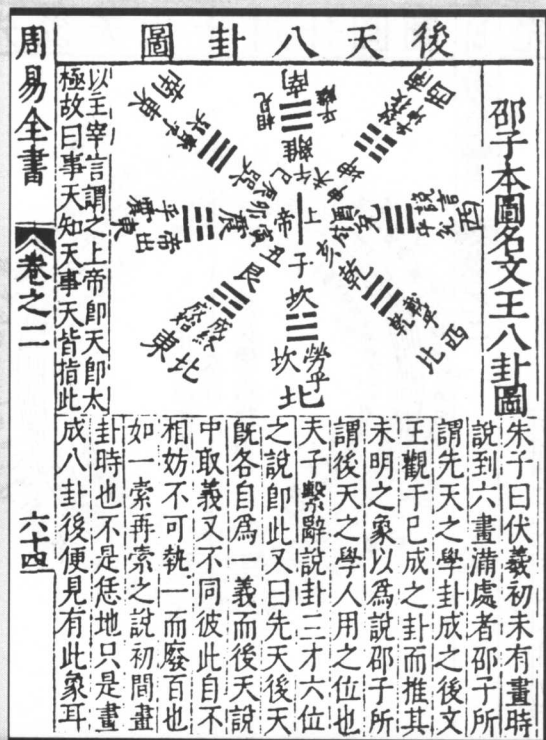 後天八卦圖
邵子本圖名文王八卦圖
南
相見乎離
離
西南
致役乎坤
西
說言乎兌
兌
西北
戰乎乾
乾
北
勞乎坎
坎
東北
艮
東
帝出乎震
震
東南
齊乎巽
巽
上帝
子
丑
寅
卯
辰
巳
午
未
申
酉
戌
亥
以主宰言謂之上帝即天即太
極故曰事天知天事天皆指此
朱子曰伏羲初未有畫時
說到六畫滿處者邵子所
謂先天之學卦成之後文
王觀于已成之卦而推其
未明之象以爲說邵子所
謂後天之學人用之位也
夫子繫辭說卦三才六位
之說即此又曰先天後天
旣各自爲一義而後天說
中取義又不同彼此自不
相妨不可執一而廢百也
如一索再索之說初間畫
卦時也不是恁地只是畫
成八卦後便見有此象耳
周易全書
卷之二
六十四